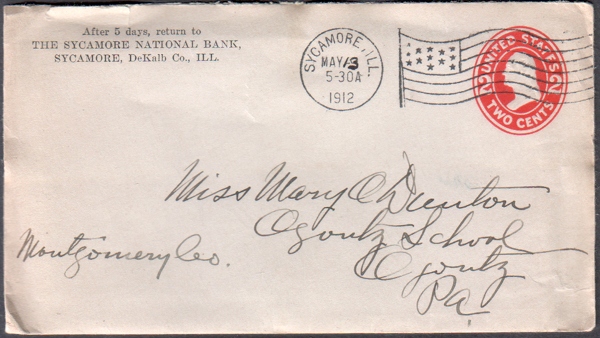 After 5 days, return to
THE SYCAMORE NATIONAL BANK,
SYCAMORE, DeKalb Co., ILL.
SYCAMORE, ILL.
MAY 13
5-30A
1912
UNITED STATES
2 2
TWO CENTS
Miss Mary O Dunton
Ogontz School
Ogontz
Pa.
Montgomery Co.